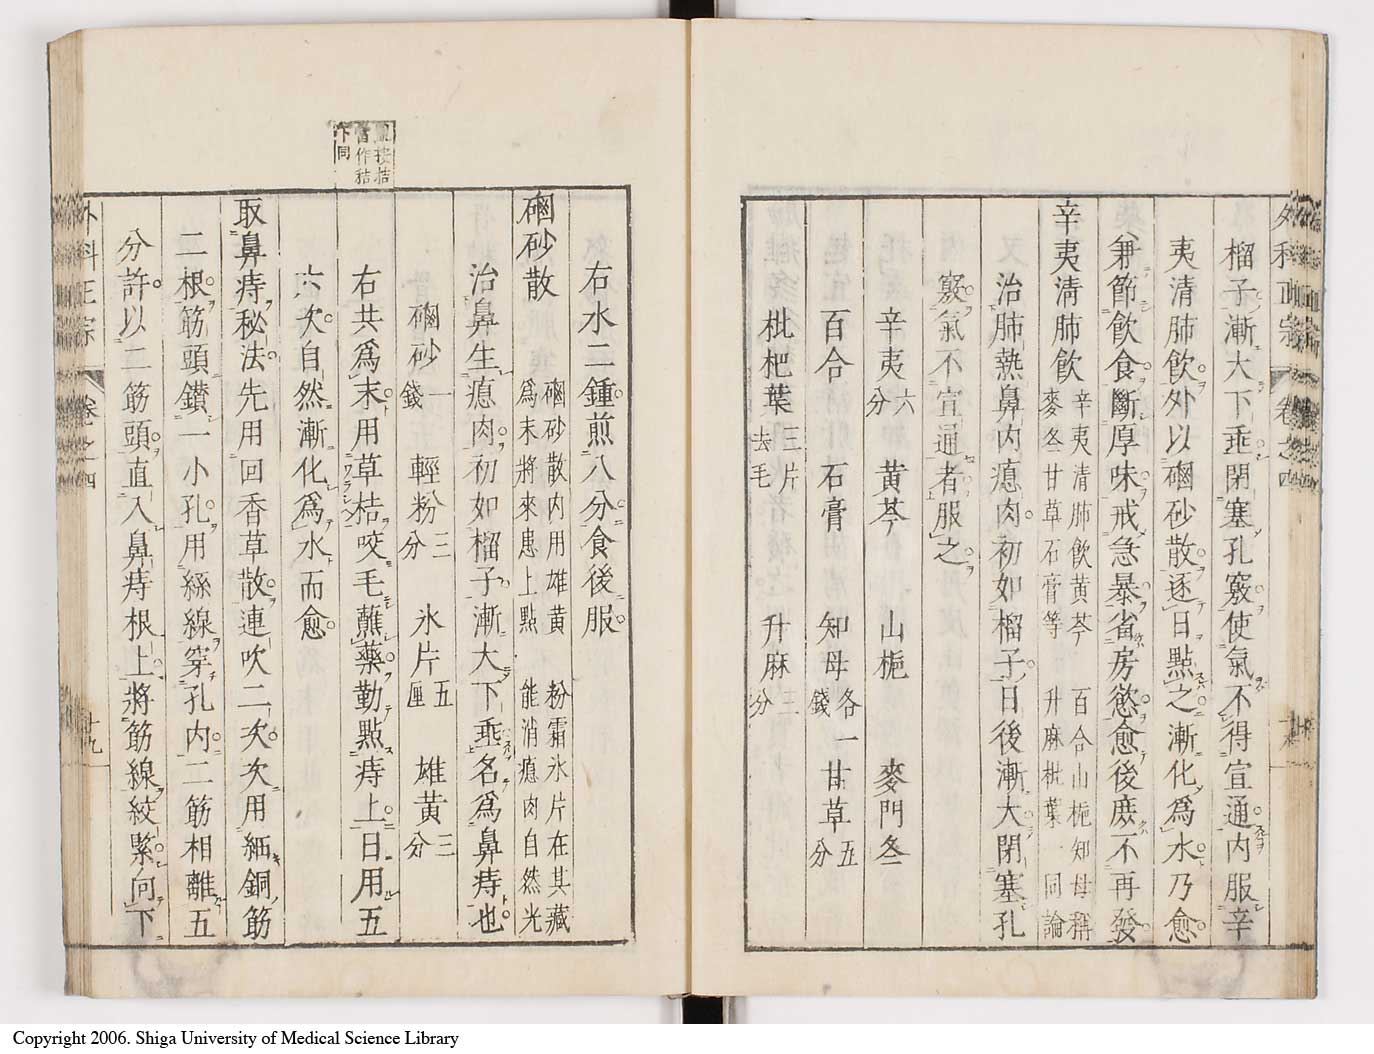 外科正宗 卷之四
榴子漸大下垂閉塞孔竅使氣不得宣通内服辛
夷清肺飲外以硇砂散逐日點之漸化爲水乃愈
兼節飲食斷厚味戒急暴省房慾愈後庶不再發
辛夷清肺飲 辛夷清肺飲黄芩 百合山梔知母稱
麥冬甘草石膏等 升麻枇葉一同論
治肺熱鼻内瘜肉初如榴子日後漸大閉塞孔
竅氣不宣通者服之
辛夷六分 黄芩 山梔 麥門冬
百合 石膏 知母各一錢 甘草五分
枇杷葉三片去毛 升麻三分
右水二鍾煎八分食後服
硇砂散 硇砂散内用雄黄 粉霜氷片在其藏
爲末將來患上點 能消瘜肉自然光
治鼻生瘜肉初如榴子漸大下垂名爲鼻痔也
硇砂一錢 輕粉三分 氷片五厘 雄黄三分
按桔
當作秸
下同
右共爲末用草桔咬毛蘸藥勤點痔上日用五
六次自然漸化爲水而愈
取鼻痔秘法先用回香草散連吹二次次用細銅筋
二根筋頭鑚一小孔用絲線穿孔内二筋相離五
分許以二筋頭直入鼻痔根上將筋線絞緊向下
外科正宗 卷之四 廿九
Copyright 2006. Shiga University of Medical Science Library